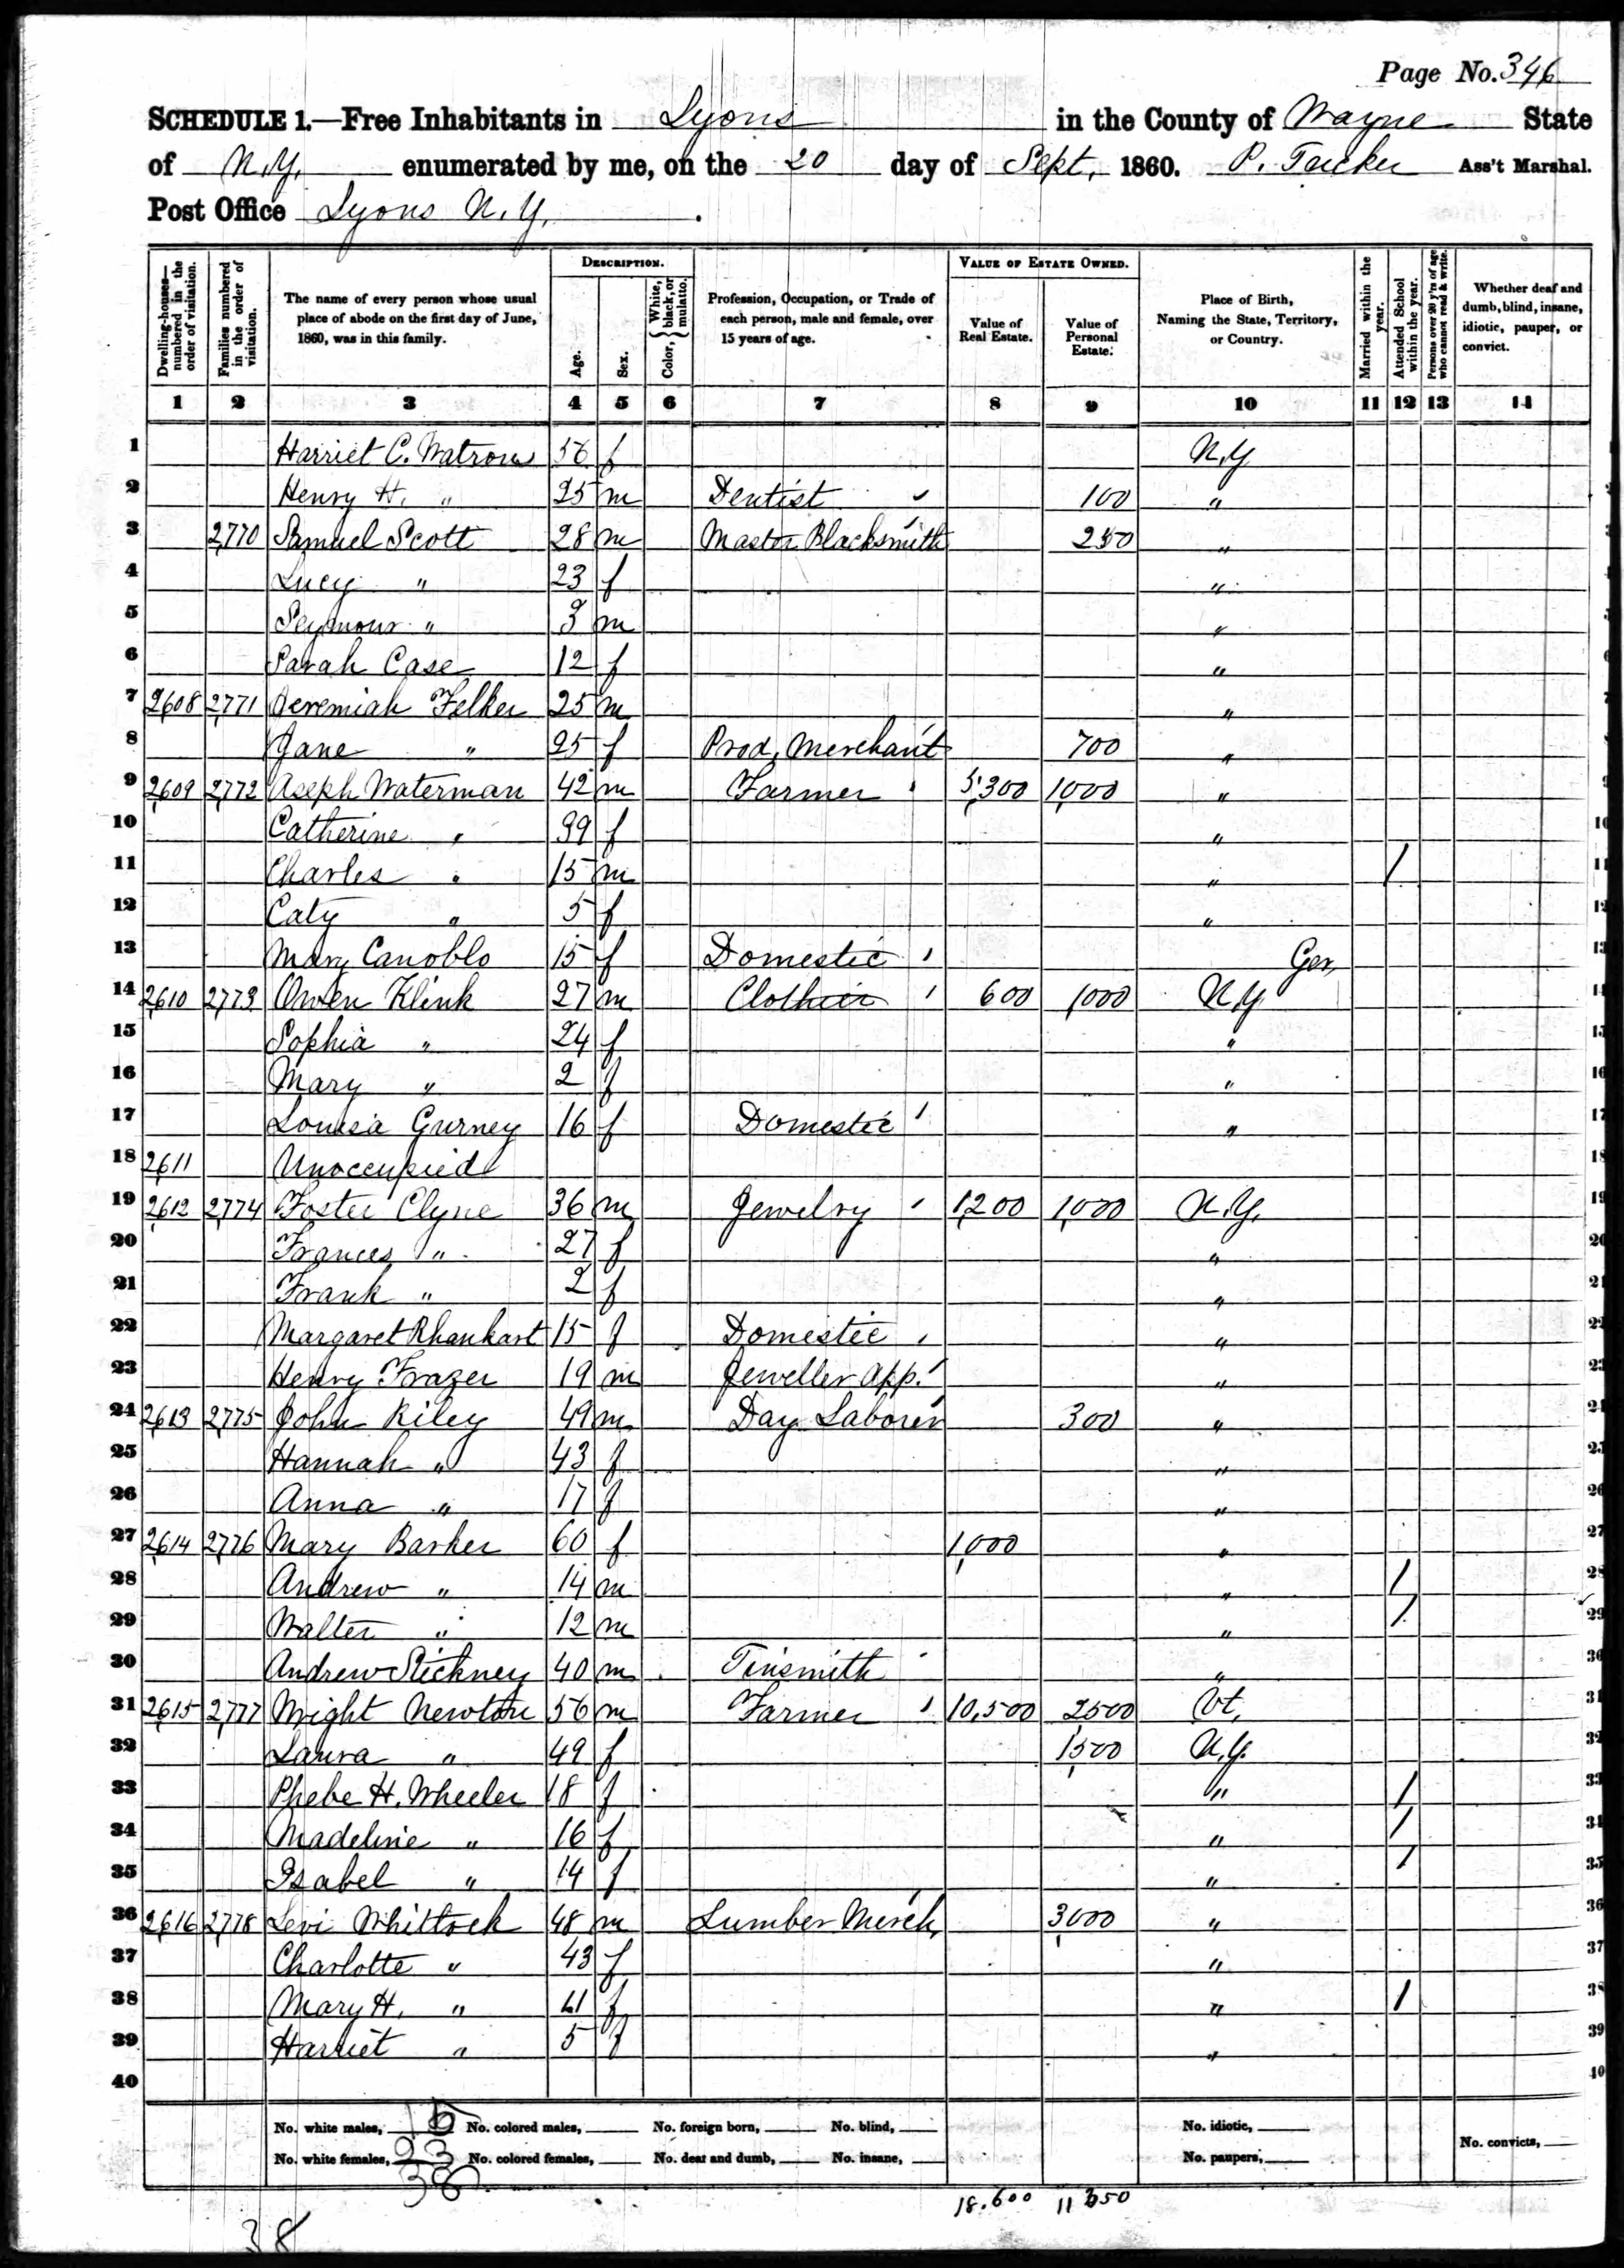 Page No. 346
SCHEDULE 1.—Free Inhabitants in Lyons in the County of Wayne State
of N.Y. enumerated by me, on the 20 day of Sept, 1860. P. Tucker Ass't Marshal.
Post Office Lyons N.Y.
Dwelling-houses—numbered in the order of visitation.
Families numbered in the order of visitation.
The name of every person whose usual place of abode on the first day of June, 1860, was in this family.
DESCRIPTION.
Age.
Sex.
Color, { White, black, or mulatto.
Profession, Occupation, or Trade of each person, male and female, over 15 years of age.
VALUE OF ESTATE OWNED.
Value of Real Estate.
Value of Personal Estate.
Place of Birth, Naming the State, Territory, or Country.
Married within the year.
Attended School within the year.
Persons over 20 y'rs of age who cannot read & write.
Whether deaf and dumb, blind, insane, idiotic, pauper, or convict.
1 2 3 4 5 6 7 8 9 10 11 12 13 14
1 Harriet C. Watrous 56 f N.Y.
2 Henry H. " 25 m Dentist 100 "
3 2,770 Samuel Scott 28 m Master Blacksmith 250 "
4 Lucy " 23 f "
5 Seymour " 3 m "
6 Sarah Case 12 f "
7 2,608 2,771 Jeremiah Felker 25 m "
8 Jane " 25 f Prod, Merchant 700 "
9 2,609 2,772 Aseph Waterman 42 m Farmer 5,300 1,000 "
10 Catherine " 39 f "
11 Charles " 15 m " /
12 Caty " 5 f "
13 Mary Canoblo 15 f Domestic Ger,
14 2,610 2,773 Owen Klink 27 m Clothier 600 1,000 N.Y.
15 Sophia " 24 f "
16 Mary " 2 f "
17 Louisa Gurney 16 f Domestic "
18 2,611 Unoccupied
19 2,612 2,774 Foster Clyne 36 m Jewelry 1,200 1,000 N.Y.
20 Frances " 27 f "
21 Frank " 2 f "
22 Margaret Rhankart 15 f Domestic "
23 Henry Frazer 19 m Jeweller App. "
24 2,613 2,775 John Riley 49 m Day Laborer 300 "
25 Hannah " 43 f "
26 Anna " 17 f "
27 2,614 2,776 Mary Barker 60 f 1,000 "
28 Andrew " 14 m " /
29 Walter " 12 m " /
30 Andrew Stickney 40 m Tinsmith "
31 2,615 2,777 Wright Newton 56 m Farmer 10,500 2,500 Vt,
32 Laura " 49 f 1,500 N.Y.
33 Phebe H. Wheeler 18 f " /
34 Madeline " 16 f " /
35 Isabel " 14 f " /
36 2,616 2,778 Levi Whitlock 48 m Lumber Merch, 3,000 "
37 Charlotte " 43 f "
38 Mary H. " f " /
39 Harriet " 5 f "
40
No. white males, 15 No. colored males, No. foreign born, No. blind, No. idiotic,
No. white females, 23 No. colored females, No. deaf and dumb, No. insane, No. paupers, No. convicts,
38 18.600
38